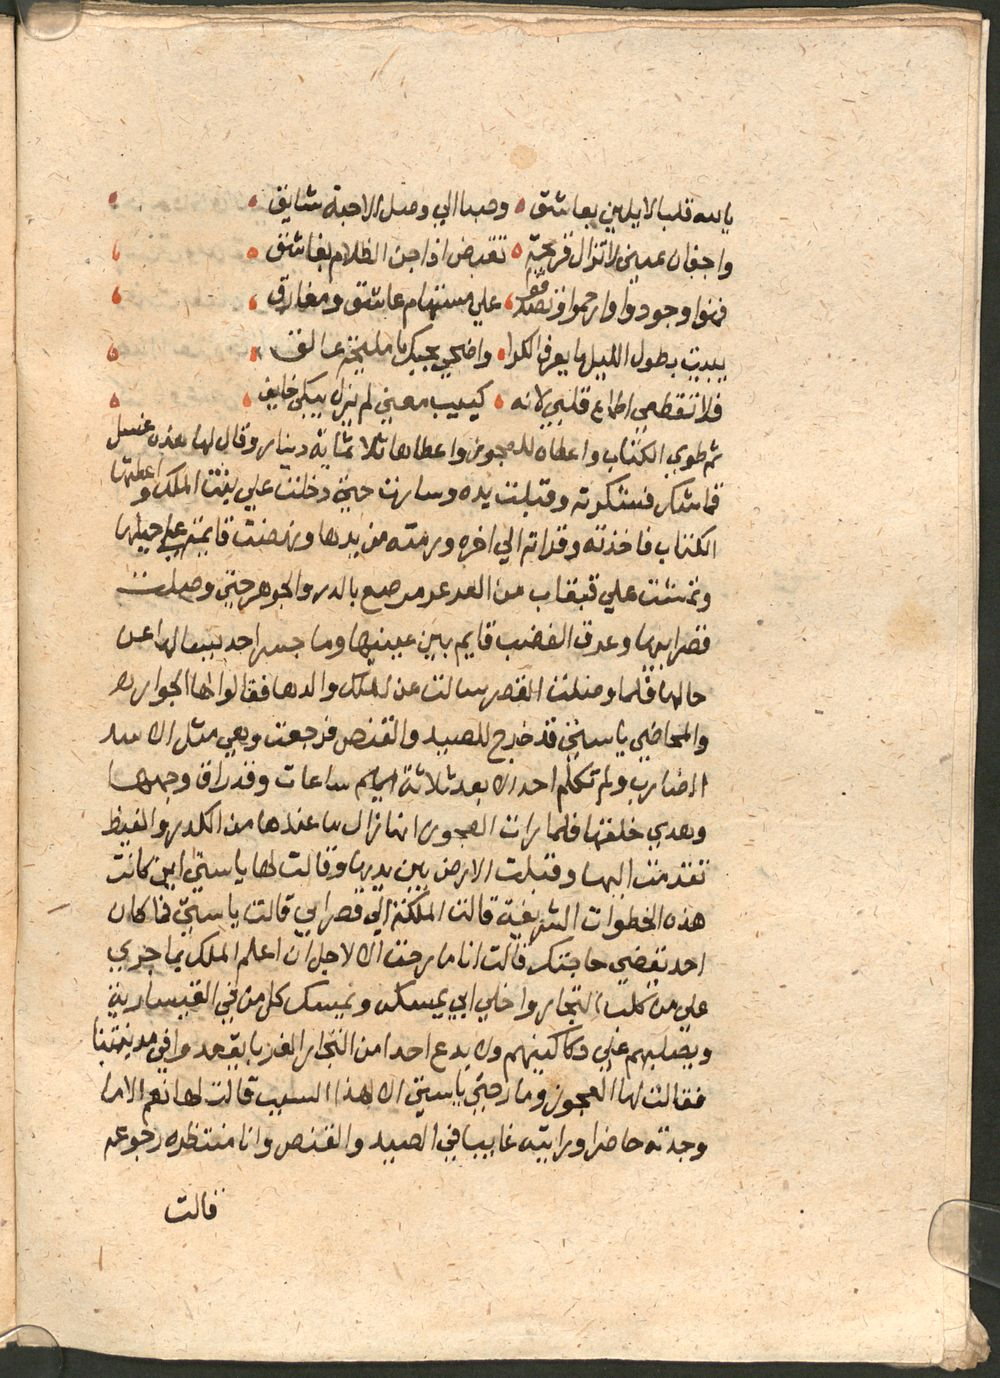 بالله قلبا لا يلين بعاشق ٥ وصبا الي وصل الاحبة شايق ٥
واجفان عيني لا تزال قريحة ٥ تقرض اذا جن الظلام بغاشق ٥
فمنوا وجودوا وارحموا وتصدقوا ٥ علي مستهام عاشق ومفارق ٥
يبيت بطول الليل ما يعرف الكرا ٥ واضحي بحبك يا مليحة عالق ٥
فلا تقطعي اطماع قلبي لانه ٥ كييب معني لم يزل يبكي خايف ٥
ثم طوي الكتاب واعطاه للعجوز واعطاها ثلاثماية دينار وقال لها هذه غسل
قماشك فشكرته وقبلت يده وسارت حتي دخلت علي بنت الملك واعطتها
الكتاب فاخذته وقراته الي اخره ورمته من يدها ونهضت قايمة علي حيلها
وتمشت علي قبقاب من العرعر مرصع بالدر والجوهر حتي وصلت
قصر ابيها وعرق الغضب قايم بين عينيها وما جسر احد يسالها عن
حالها فلما وصلت القصر سالت عن الملك والدها فقالوا لها الجوار
والمحاضي يا ستي قد خرج للصيد والقنص فرجعت وهي مثل الاسد
الضارب ولم تكلم احد الا بعد ثلاثة ايام ساعات وقد راق وجهها
وهدي خلقها فلما رات العجوز انها زال ما عندها من الكدر والغيظ
تقدمت اليها وقبلت الارض بين يديها وقالت لها يا ستي اين كانت
هذه الخطوات الشريفة قالت الملكة الي قصر ابي قالت يا ستي فما كان
احد تقضي حاجتك قالت انا ما رحت الا لاجل ان اعلم الملك بما جري
علي من كلب التجار واخلي ابي يمسكه ويمسك كل من في القيسارية
ويصلبهم علي دكاكينهم ولا يدع احدا من التجار الغربا يقعدوا في مدينتنا
فقالت لها العجوز وما رحتي يا ستي الا لهذا السبب قالت لها نعم الا ما
وجدته حاضرا ورايته غايبا في الصيد والقنص وانا منتظره رجوعه
قالت